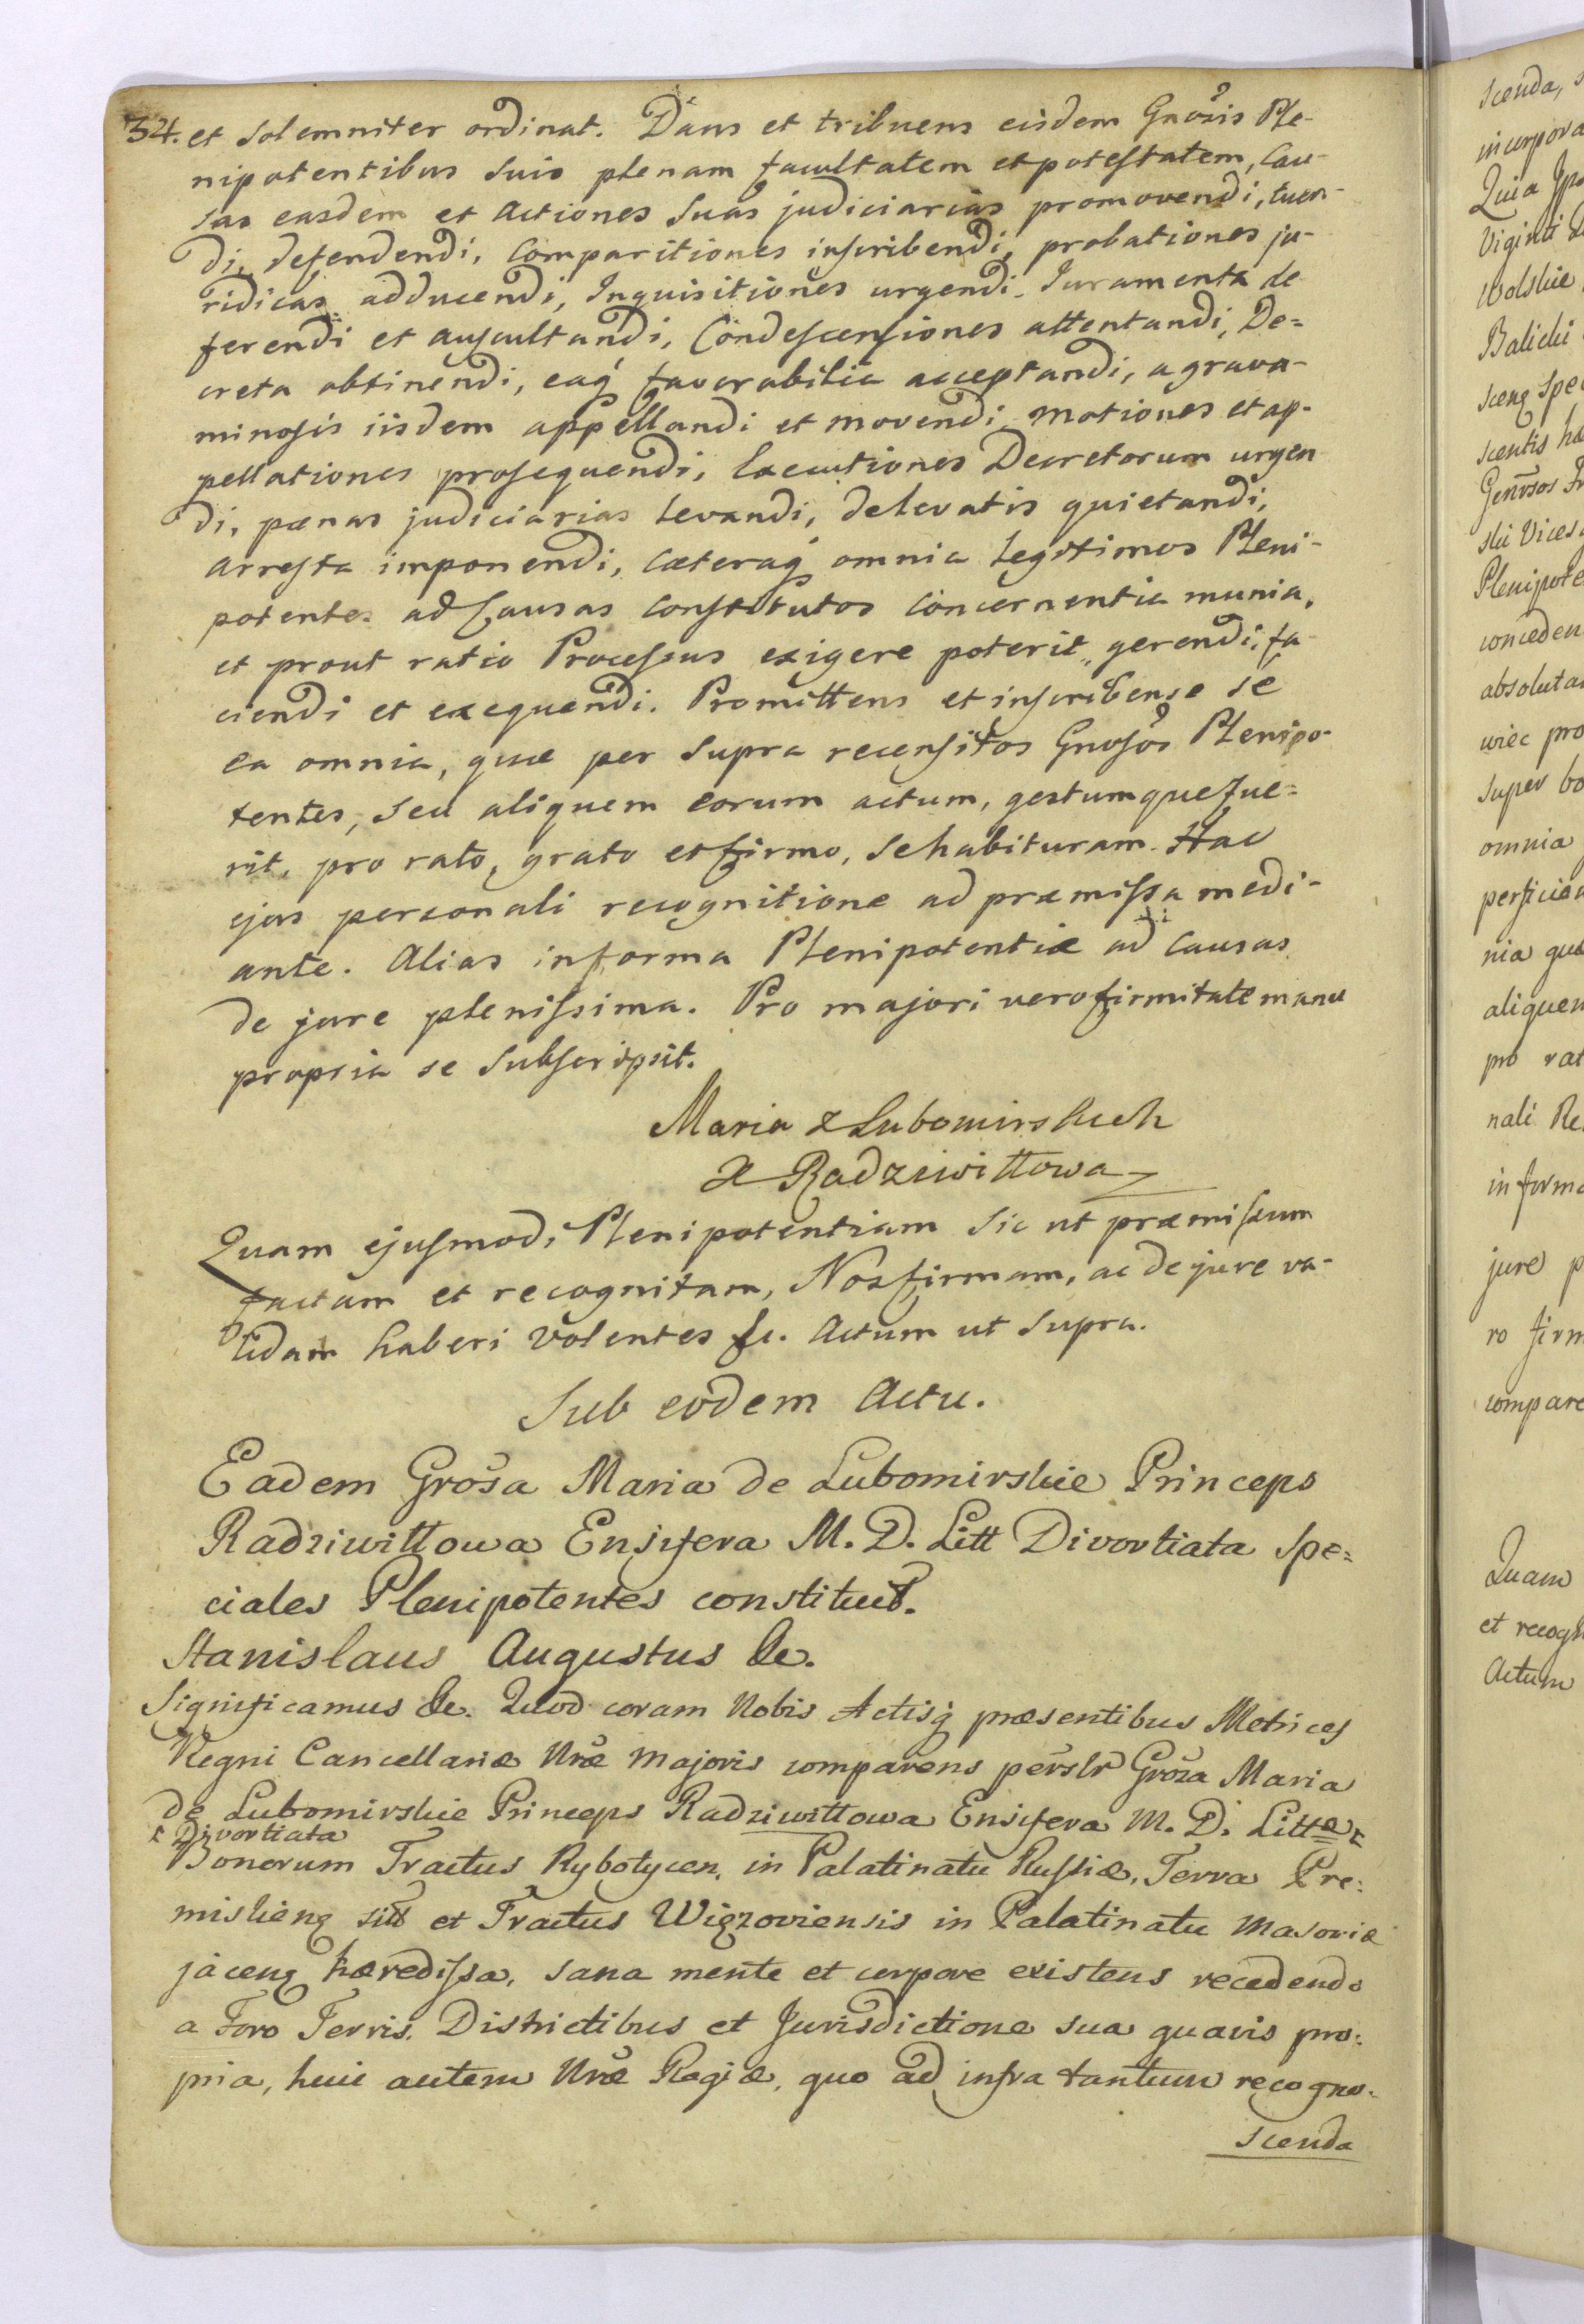 34. et Solemniter ordinat. Dans et tribuens eisdem Gnõsis Ple-
nipotentibus suis plenam facultatem et potestatem, Cau-
sas easdem et Actiones Suas judiciarias promovendi, tuen-
di, defendendi, Comparitiones inscribendi, probationes ju-
ridicas adducendi, Inquisitiones urgendi. Juramenta de
ferendi et auscultandi, Condescensiones attentandi, De=
creta obtinendi, eaq́ favorabilia acceptandi, a grava-
minosis iisdem appellandi et movendi motiones et ap-
pellationes prosequendi, Executiones Decretorum urgen
di, pænas judiciarias levandi, de levatis quietandi,
arresta imponendi, Cæteraq́ omnia Legitimos Pleni-
potentes ad Causas Constitutos concernentia munia,
et prout ratio Processus exigere poterit, gerendi, fa-
ciendi et exequendi. Promittens et inscribens se
ea omnia, quæ per Supra recensitos Gnosõs Plenipo-
tentes, seu aliquem eorum actum, gestumque fue=
rit, pro rato, grato et firmo, se habituram. Hac
ejus personali recognitione ad præmissa medi-
ante. Alias in forma Plenipotentiæ ad Causas
de jure plenissima. Pro majori vero firmitate manu
propria se Subscripsit.
Maria z Lubomirskich
X Radziwiłłowa
Quam ejusmodi Plenipotentiam Sic ut præmissum
factam et recognitam, Nos firmam, ac de jure va-
lidam haberi volentes &c. Actum ut Supra.
Sub eodem Actu.
Eadem Grõsa Maria de Lubomirskie Princeps
Radziwiłłowa Ensifera M. D. Litt Divortiata Spe=
ciales Plenipotentes constituit.
Stanislaus Augustus &c.
Significamus &c. Quod coram Nobis Actisq́ præsentibus Metrices
Regni Cancellariæ Nr̃æ Majoris comparens persl̃r Grõza Maria
de Lubomirskie Princeps Radziwiłłowa Ensifera M. D. Littæ
Divortiata
Bonorum Tractus Rybotycen. in Palatinatu Russiæ, Terra Pre:
misliens sit̃ et Tractus Wigzoviensis in Palatinatu Masoviæ
jacens hæredissa, sana mente et corpore existens recedendo
a Foro Terris. Districtibus et Jurisdictione sua quavis pro:
pria, huic autem Nr̃æ Regiæ, quo ad infra tantum recogno-
scenda
scenda, s
incorpora
Quia Ip
Viginti
Wolskie
Balicki
spe
scentis ha
Genr̃sos
ski Vices
Plenipote
conceden
absoluta
wiec pro
super bo
omnia
perficien
nia quæ
aliquem
pro rat
nali Re
in forma
jure p
ro firm
compare
Quam
et recogn
Actum